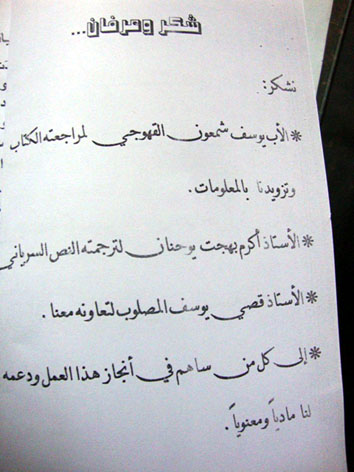 شكر وعرفان...
نشكر:
* الأب يوسف شمعون القهوجي لمراجعته الكتاب
وتزويدنا بالمعلومات.
* الأستاذ أكرم بهجت يوحنان لترجمته النص السرياني
* الأستاذ قصي يوسف المصلوب لتعاونه معنا.
* إلى كل من ساهم في أنجاز هذا العمل ودعمه
لنا مادياً ومعنوياً.